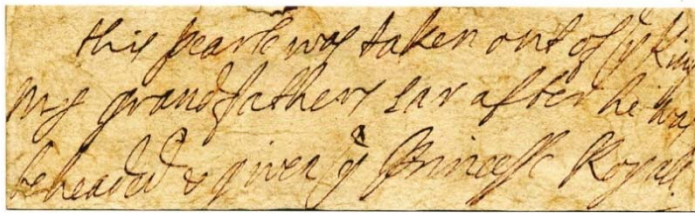 this pearle was taken out of yᵉ King
my grandfathers ear after he was
beheaded & given yᵉ Princess Royall